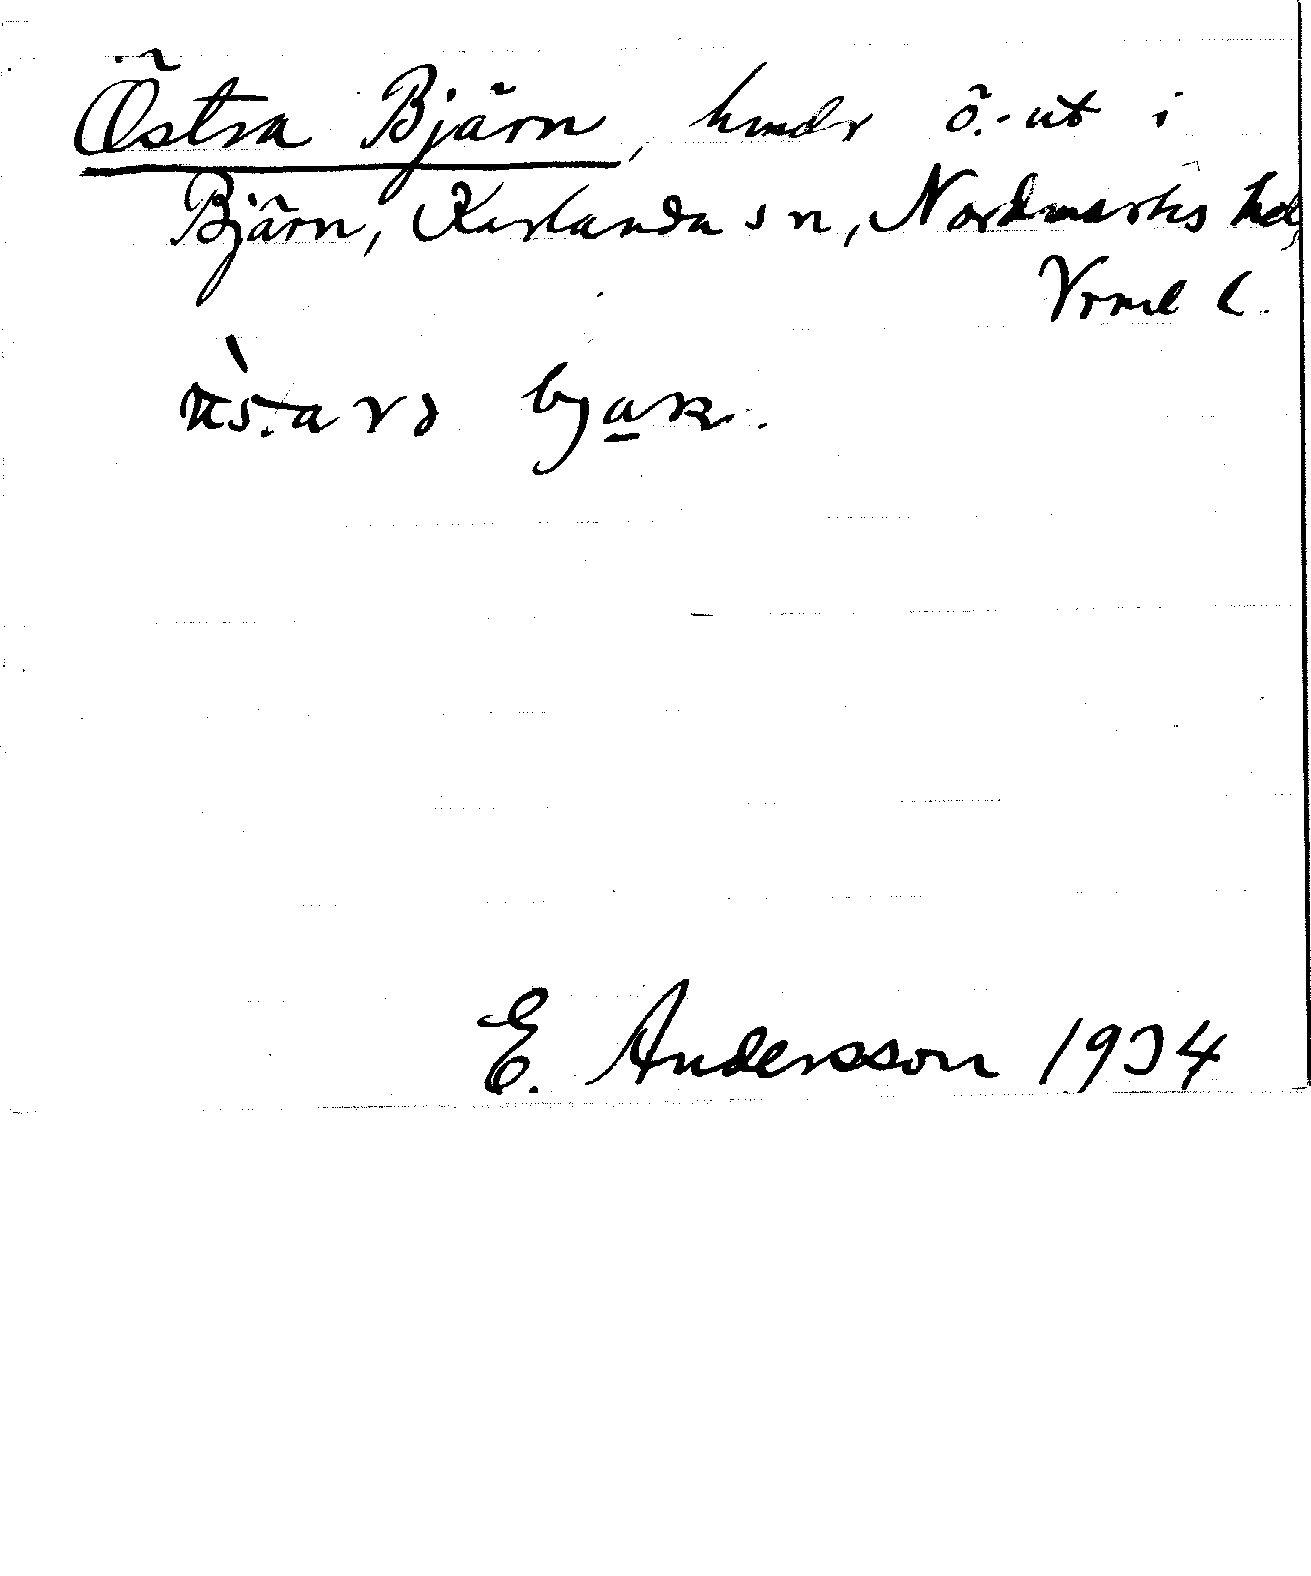 Östra Bjärn, hmdr ö.-ut i
Bjärn, Karlanda sn, Nordmarks hd,
Vrml l.
bjaɴ.
E. Andersson 1934